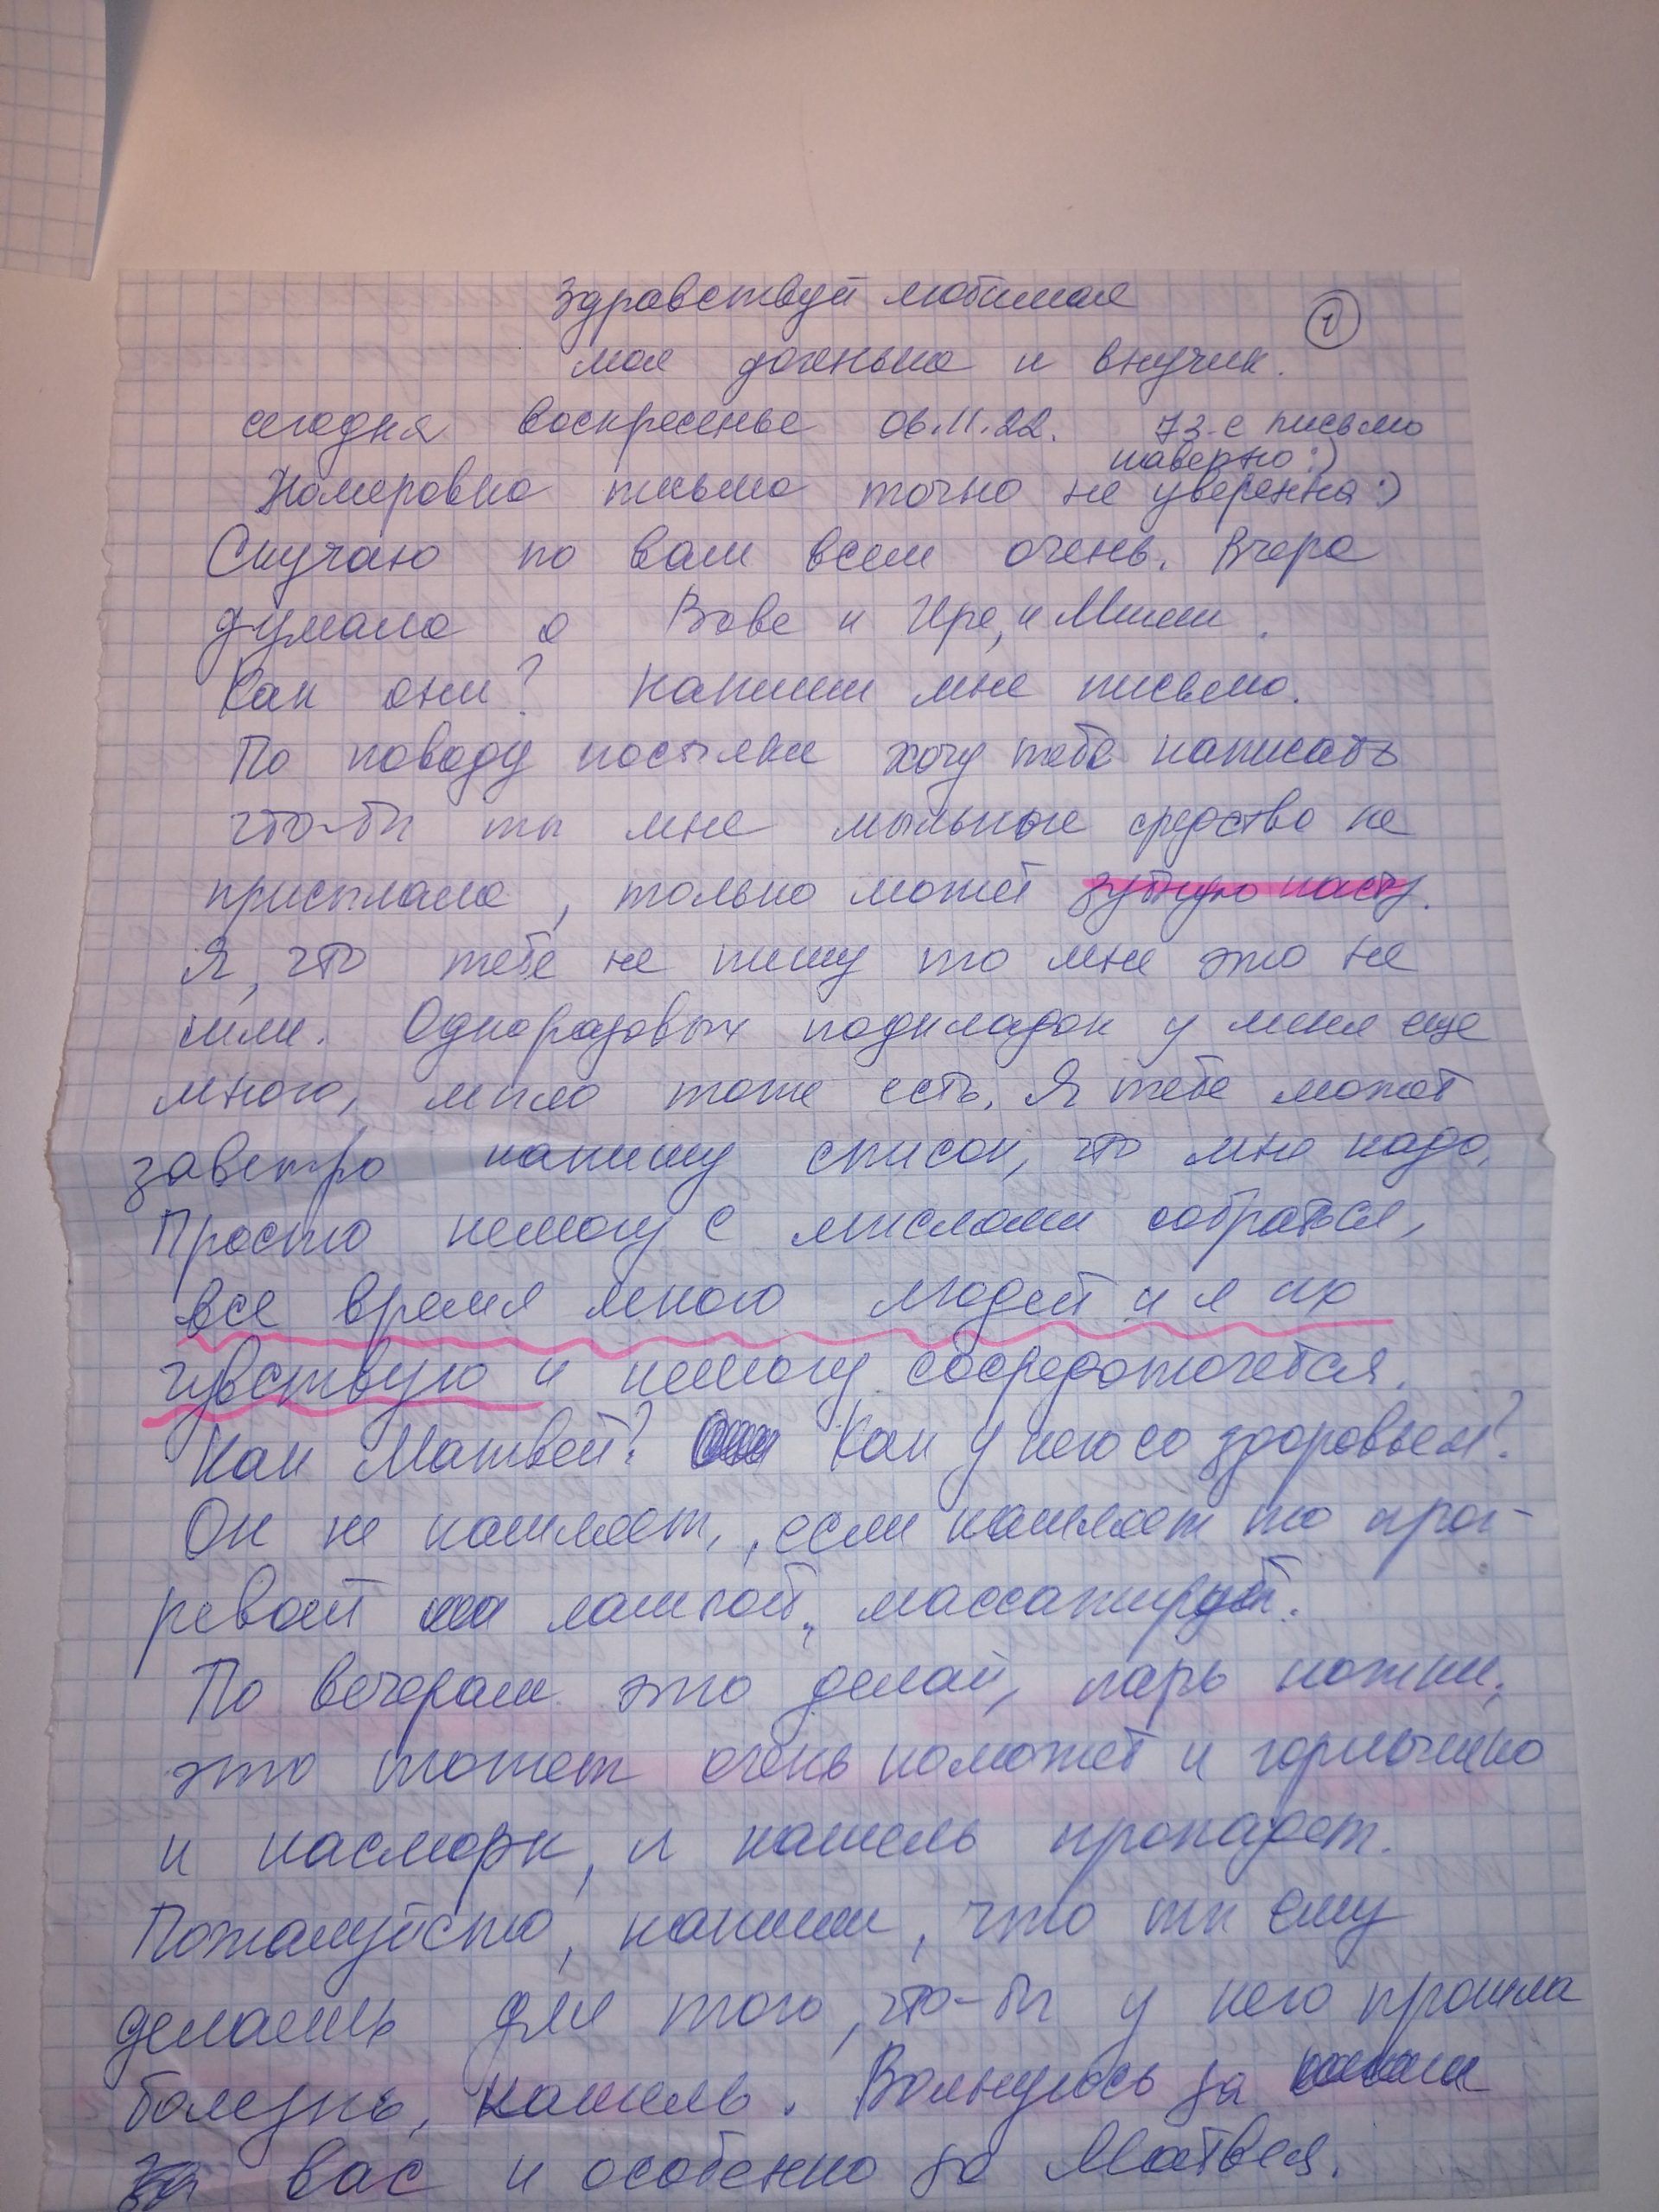 Здравствуй любимая
1
моя доченька и внучик.
сегодня воскресенье 06.11.22. 73-е письмо
наверно :)
Номеровка письма точно не уверенна :)
Скучаю по вам всем очень. Вчера
думала о Вове и Ире, и Миши.
Как они? Напиши мне письмо.
По поводу посылки хочу тебе написать
что-бы ты мне мыльные средство не
присылала, только может зубную пасту.
Я, что тебе не пишу то мне это не
шли. Одноразовых подкладок у меня еще
много, мыло тоже есть. Я тебе может
завстро напишу список, что мне надо.
Просто немогу с мыслями собраться,
все время много людей и я их
чувствую и немогу сосредоточется.
Как Матвей? Как у него со здоровьем?
Он не кашляет, если кашляет то прог-
ревай лампой, массажируй.
По вечерам это делай, парь ножки,
это может очень поможет и горлочико
и насморк, и кашель пропадет.
Пожалуйста, напиши, что ты ему
делаешь для того, что-бы у него прошла
болезнь, кашель. Волнуюсь за
за вас и особенно за Матвея.